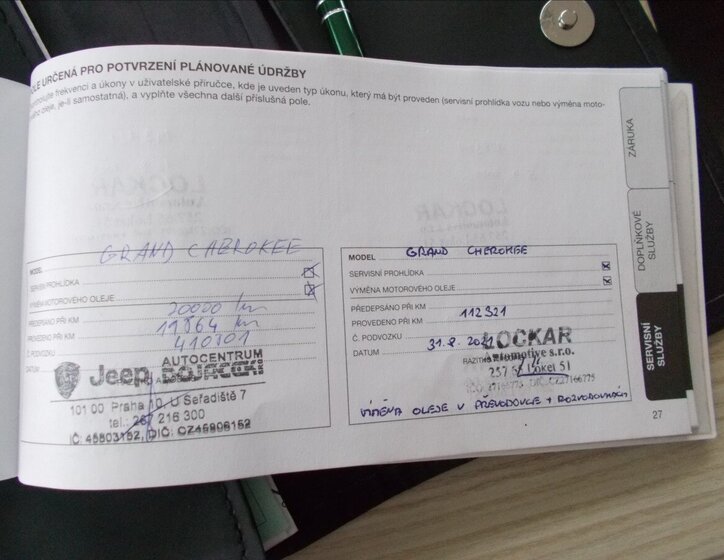 OLE URČENÁ PRO POTVRZENÍ PLÁNOVANÉ ÚDRŽBY
frekvenci a úkony v uživatelské příručce, kde je uveden typ úkonu, který má být proveden (servisní prohlídka vozu nebo výměna moto-
oleje, je-li samostatná), a vyplňte všechna další příslušná pole.
ZÁRUKA
DOPLŇKOVÉ
SLUŽBY
SERVISNÍ
SLUŽBY
MODEL GRAND CHEROKEE
SERVISNÍ PROHLÍDKA
VÝMĚNA MOTOROVÉHO OLEJE
PŘEDEPSÁNO PŘI KM 20000 km
PROVEDENO PŘI KM 19864 km
Č. PODVOZKU 410701
DATUM
AUTOCENTRUM
Jeep DOJÁČEK
101 00 Praha 10, U Seřadiště 7
tel.: 267 216 300
IČ: 45803152, DIČ: CZ45906152
MODEL GRAND CHEROKEE
SERVISNÍ PROHLÍDKA
VÝMĚNA MOTOROVÉHO OLEJE
PŘEDEPSÁNO PŘI KM
PROVEDENO PŘI KM 112321
Č. PODVOZKU
DATUM 31.8.
LOCKAR
automotive s.r.o.
51
VÝMĚNA OLEJE V PŘEVODOVCE + ROZVODOVKÁCH
27